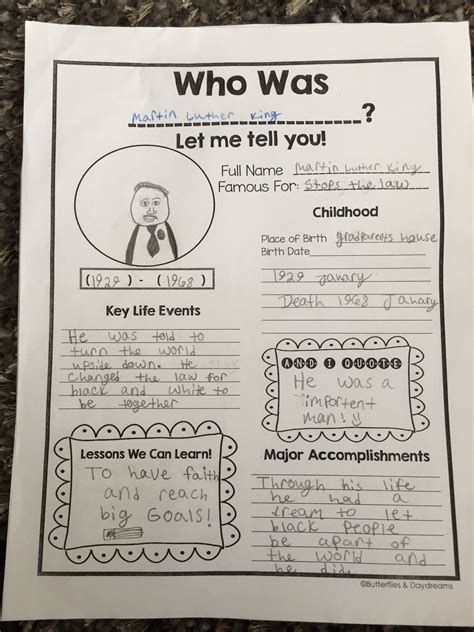 Who Was
Martin Luther King ?
Let me tell you!
Full Name Martin Luther King
Famous For: Stops the law
Childhood
Place of Birth gradparents house
Birth Date
1929 Janary
Death 1968 Janary
(1929) - (1968)
Key Life Events
He was told to
turn the world
upside down. He
changed the law for
black and white to
be together
AND I QUOTE
He was a
importent
man!
Lessons We Can Learn!
To have faith
and reach
big Goals!
Major Accomplishments
Through his life
he had a
dream to let
black people
be apart of
the world and
he did.
©Butterflies & Daydreams